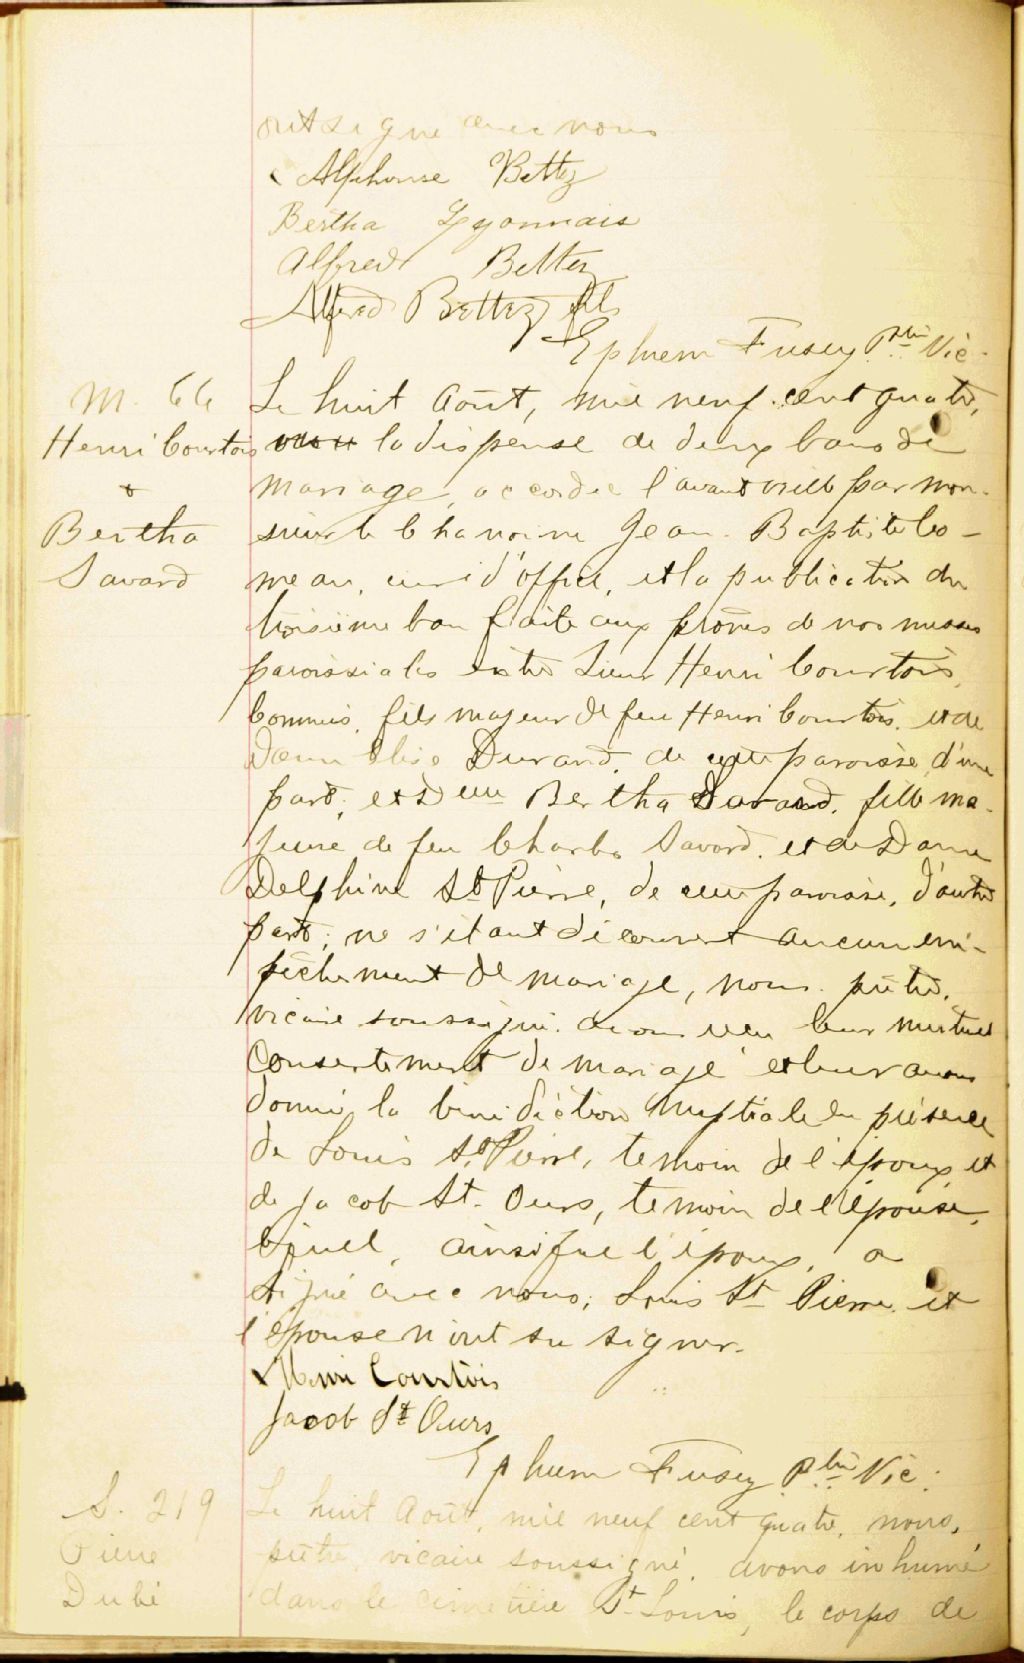 ont signé avec nous
Alphonse Bettez
Bertha Lyonnais
Alfred Bettez
Alfred Bettez fils
Ephrem Fusey Ptre Vic.
M. 66
Henri Courtois
&
Bertha
Savard
Le huit Août, mil neuf cent quatre,
vu la dispense de deux bans de
mariage, accordée l'avant veille par mon-
sieur le Chanoine Jean-Baptiste Co-
meau, curé d'office, et la publication du
troisième ban faite aux prônes de nos messes
paroissiales entre Sieur Henri Courtois,
Commis, fils majeur de feu Henri Courtois, et de
Dame Elise Durand, de cette paroisse, d'une
part; et Delle Bertha Savard, fille ma-
jeure de feu Charles Savard, et de Dame
Delphine St Pierre, de cette paroisse, d'autre
part; ne s'étant découvert aucun em-
pêchement de mariage, nous, prêtre,
vicaire soussigné, avons reçu leur mutuel
Consentement de mariage et leur avons
donné la bénédiction nuptiale en présence
de Louis St Pierre, temoin de l'époux et
de Jacob St. Ours, temoin de l'épouse,
lequel, ainsi que l'époux, a
signé avec nous; Louis St Pierre et
l'épouse n'ont su signer.
Henri Courtois
Jacob St Ours
Ephrem Fusey Ptre Vic.
S. 219
Pierre
Dubé
Le huit Août, mil neuf cent quatre, nous,
prêtre, vicaire soussigné, avons inhumé
dans le cimetière St Louis, le corps de